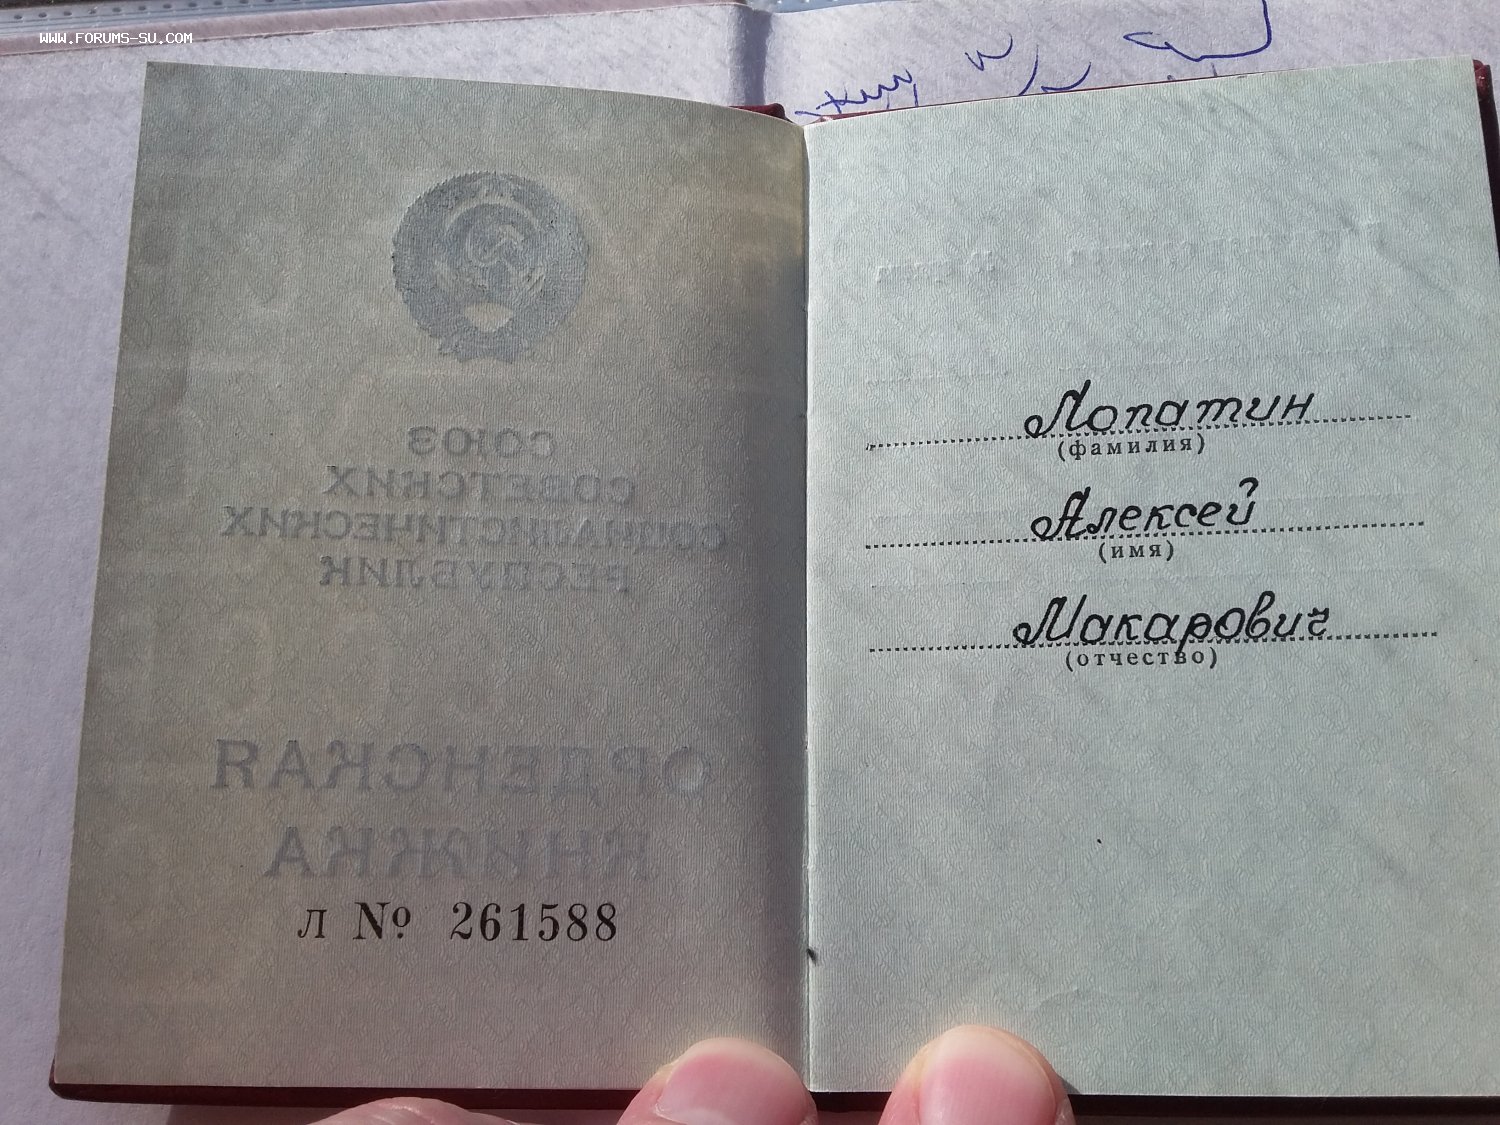 WWW.FORUMS-SU.COM
СОЮЗ
СОВЕТСКИХ
СОЦИАЛИСТИЧЕСКИХ
РЕСПУБЛИК
ОРДЕНСКАЯ
КНИЖКА
Л № 261588
Лопатин
(фамилия)
Алексей
(имя)
Макарович
(отчество)